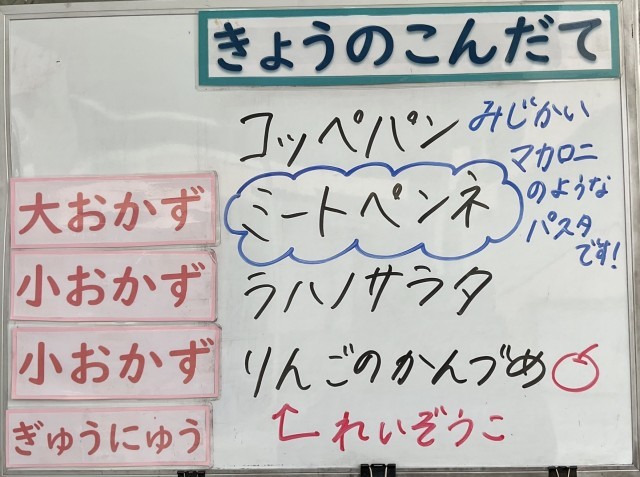 きょうのこんだて
コッペパン
みじかい
マカロニ
のような
パスタ
です!
大おかず
ミートペンネ
小おかず
ラハノサラタ
小おかず
りんごのかんづめ
ぎゅうにゅう
れいぞうこ